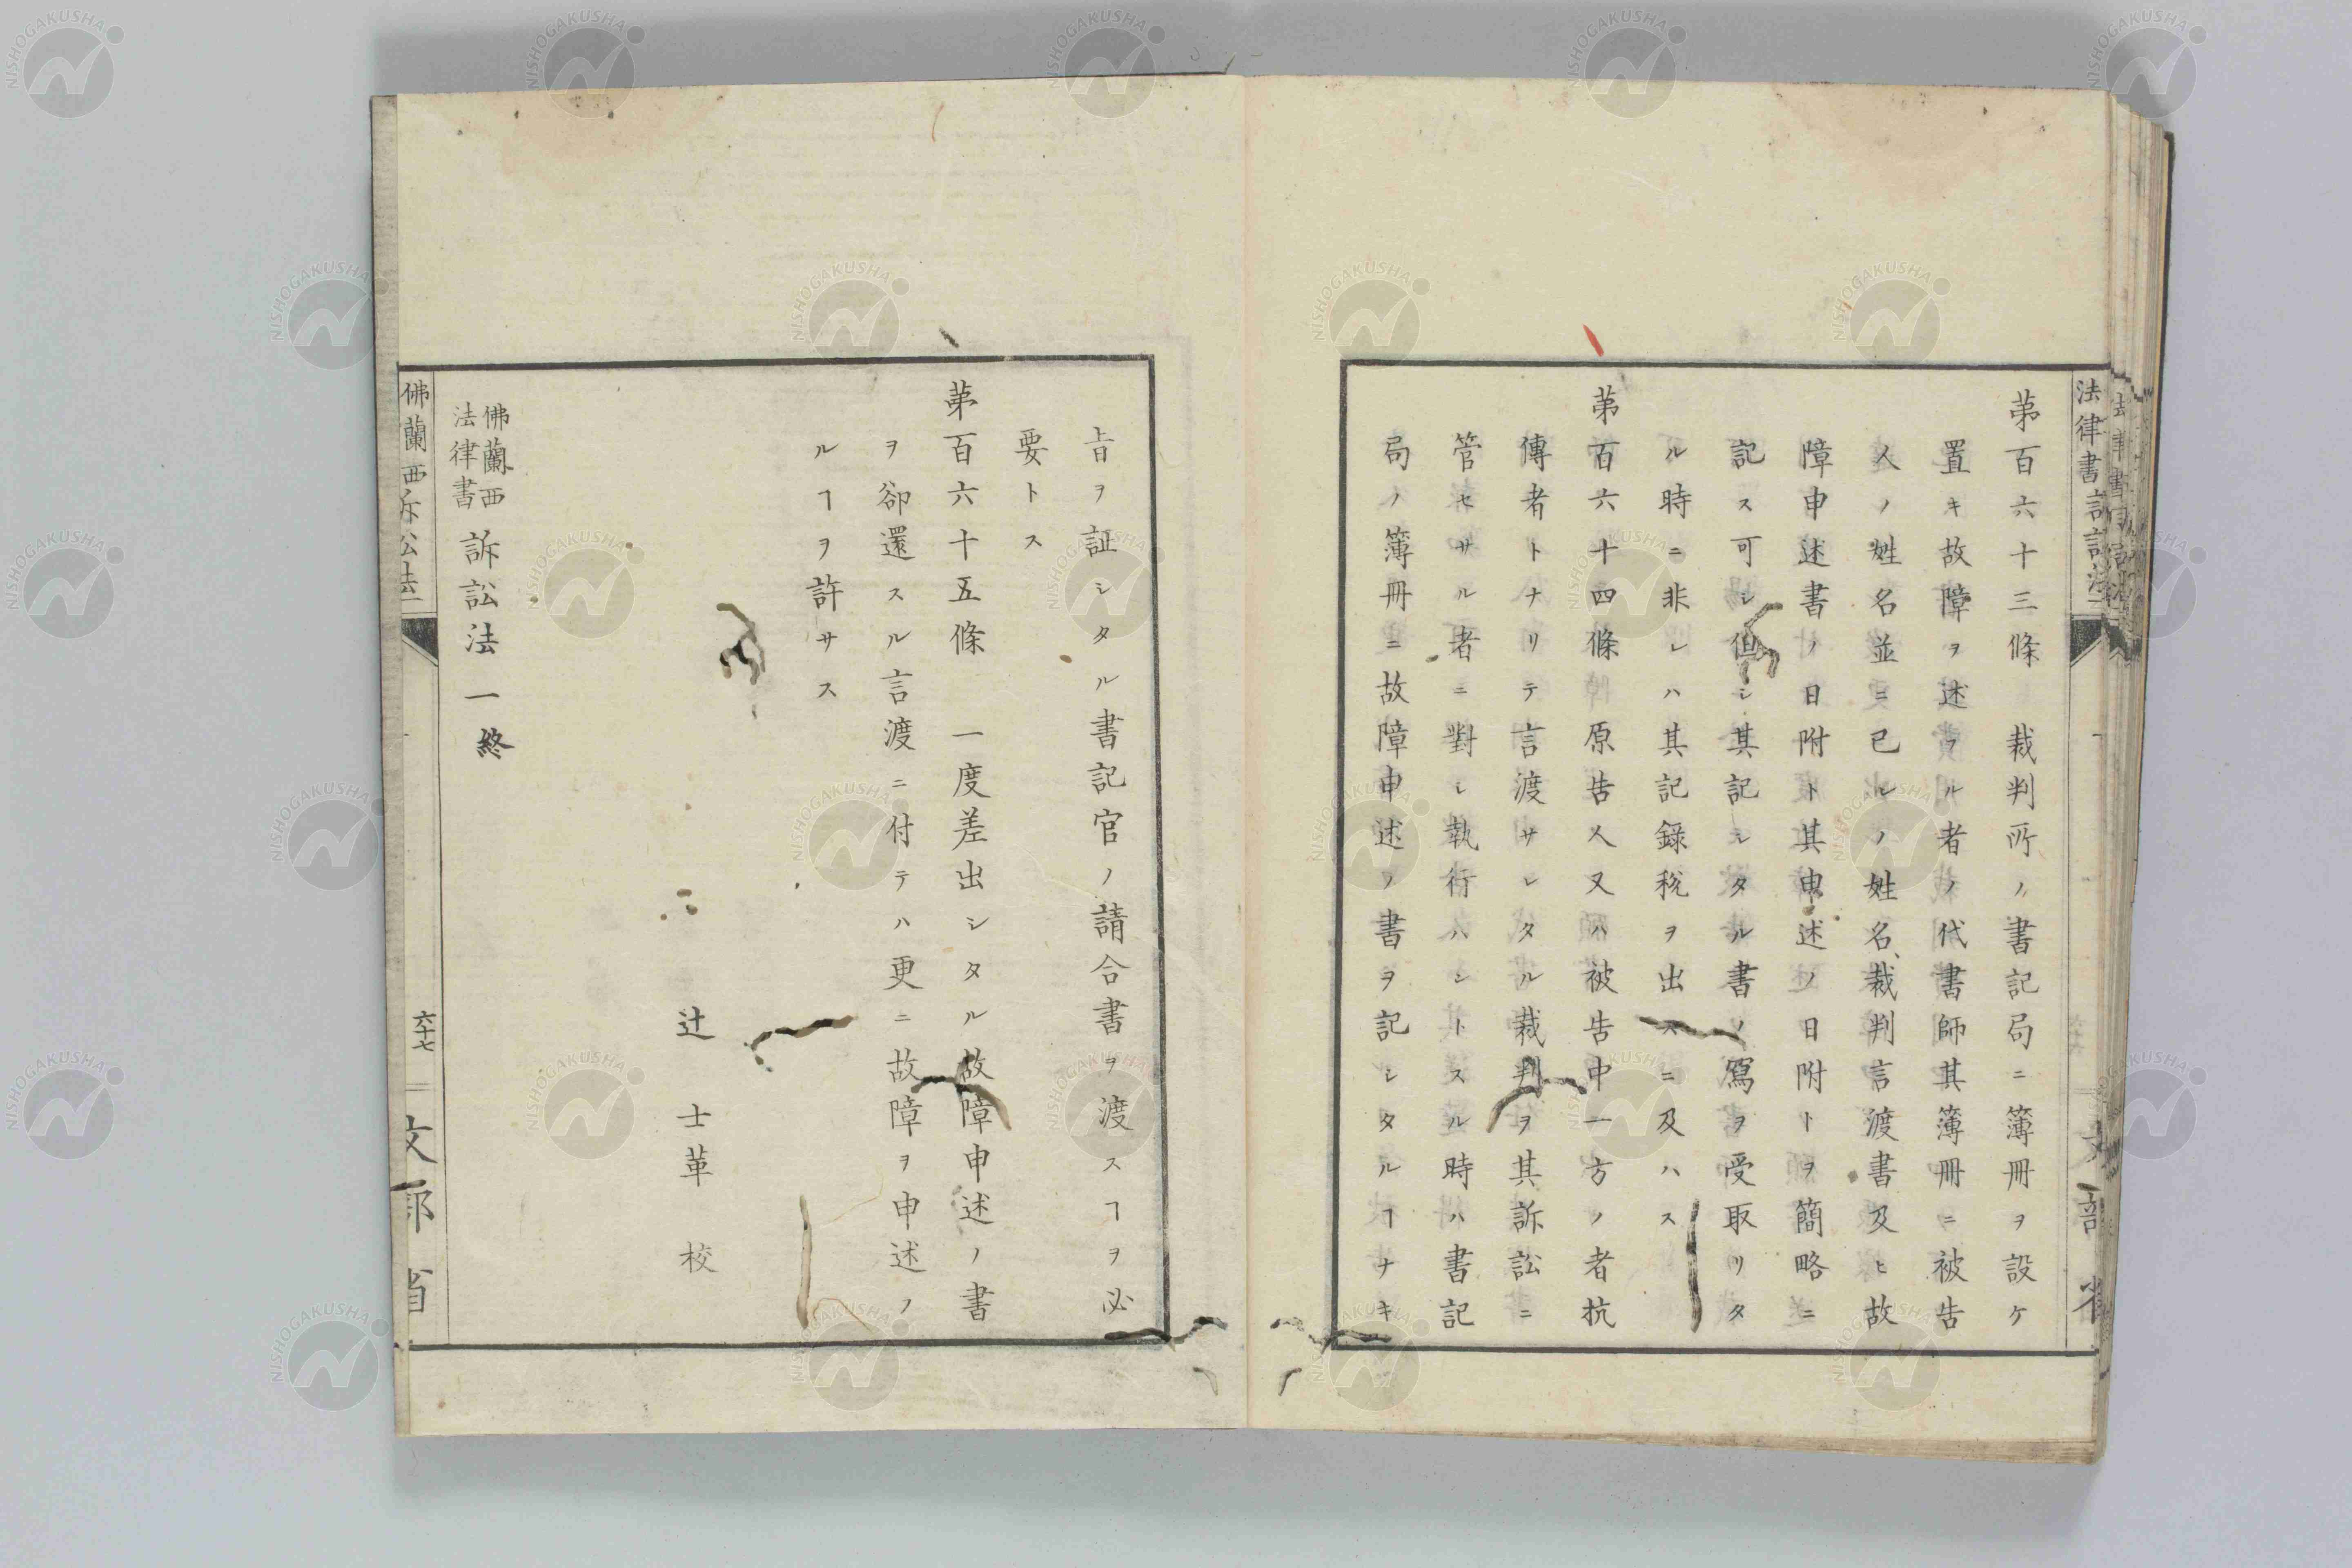 第百六十三條　裁判所ノ書記局ニ簿冊ヲ設ケ
置キ故障ヲ述フル者ノ代書師其簿冊ニ被告
人ノ姓名並ニ已レノ姓名、裁判言渡書及ヒ故
障申述書ノ日附ト其申述ノ日附トヲ簡略ニ
記ス可シ但シ其記シタル書ノ寫ヲ受取リタ
ル時ニ非レハ其記録税ヲ出スニ及ハス
第百六十四條　原告人又ハ被告中一方ノ者抗
傳者トナリテ言渡サレタル裁判ヲ其訴訟ニ
管セサル者ニ對シ執行ハントスル時ハ書記
局ノ簿冊ニ故障申述ノ書ヲ記シタルヿナキ
旨ヲ証シタル書記官ノ請合書ヲ渡スヿヲ必
要トス
第百六十五條　一度差出シタル故障申述ノ書
ヲ卻還スル言渡ニ付テハ更ニ故障ヲ申述ノ
ルヿヲ許サス
辻　士革　校
佛蘭西法律書　訴訟法一終
佛蘭西訴訟法一　六十七　文部省
法律書
NISHOGAKUSHA